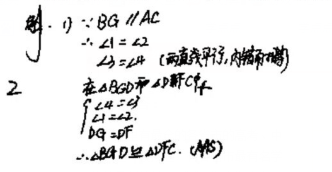 解. 1) ∵BG∥AC
∴∠1=∠2
∠3=∠4 (两直线平行,内错角相等)
2 在△BGD和△DFC中
∠4=∠3
∠1=∠2.
DG=DF
∴△BGD≌△DFC. (AAS)